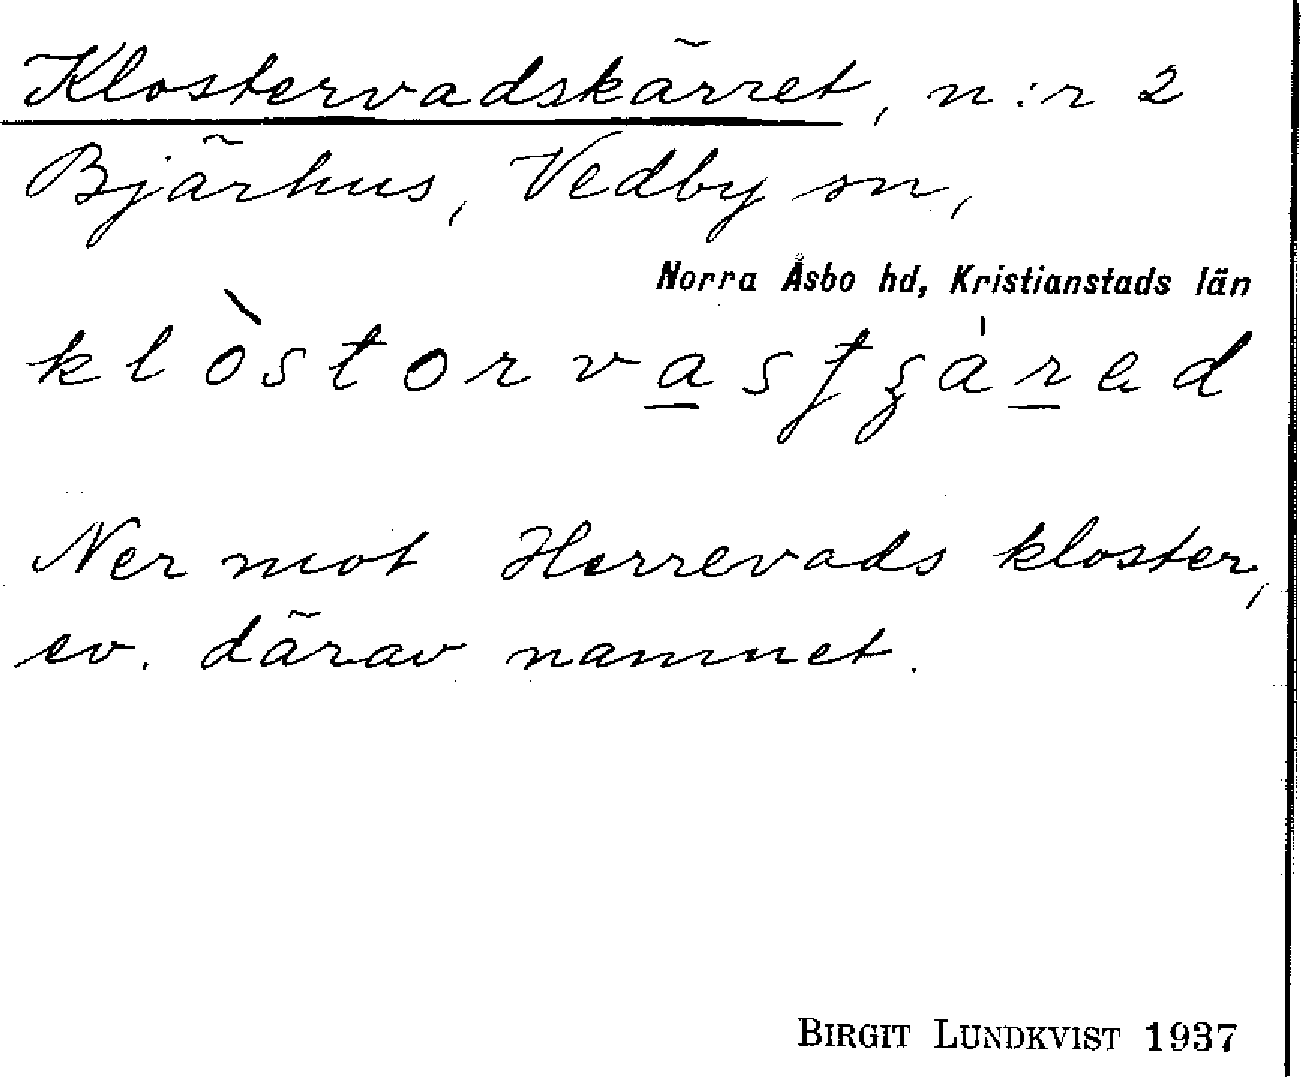 Klostervadskärret, n:r 2
Bjärhus, Vedby sn,
Norra Åsbo hd, Kristianstads län
Ner mot Herrevads kloster,
ev. därav namnet.
BIRGIT LUNDKVIST 1937